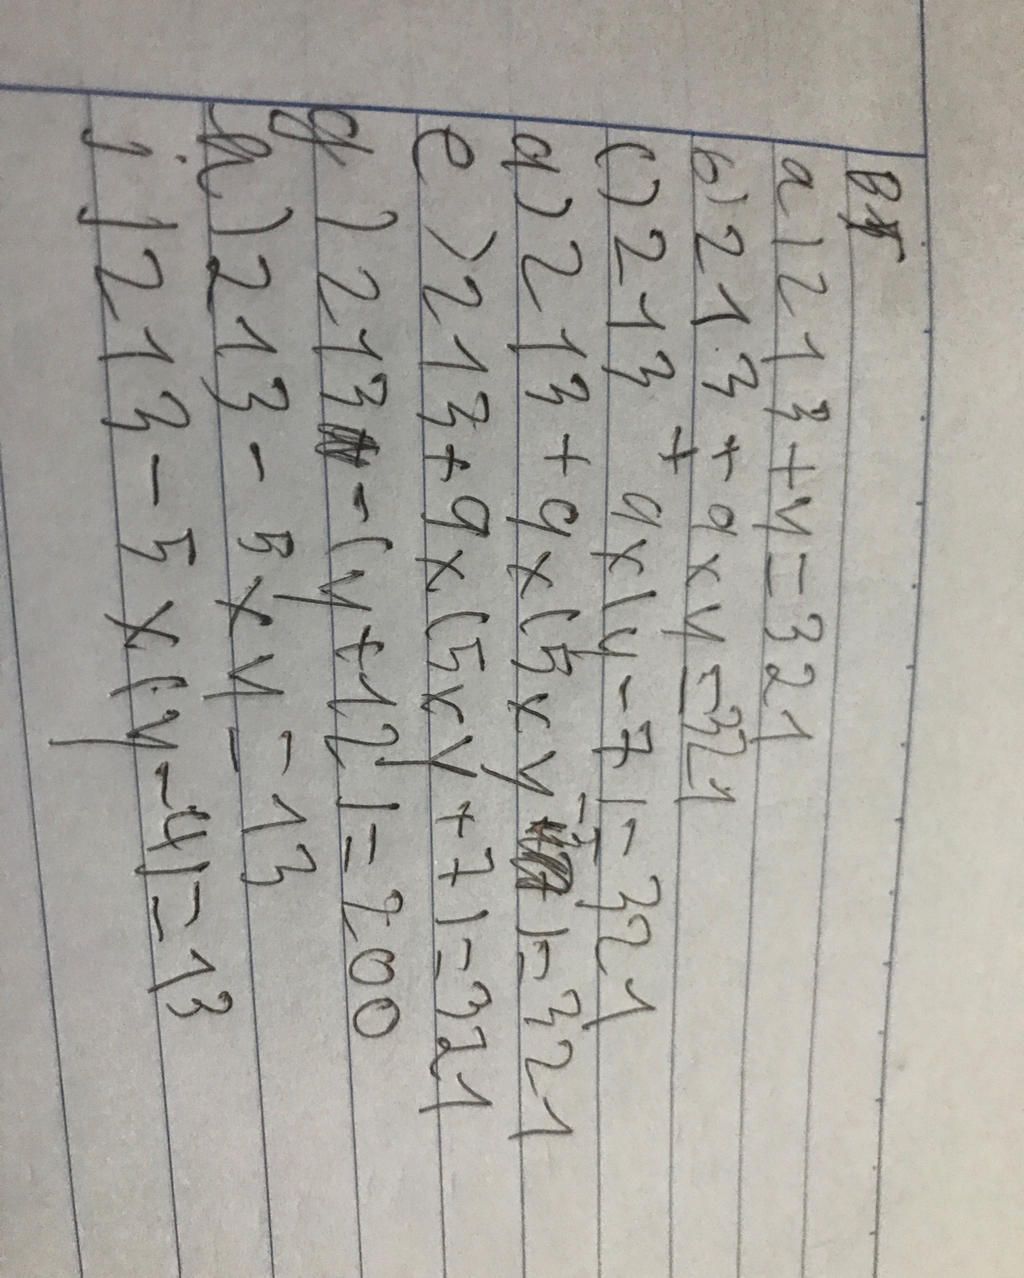 BT
a) 213 + y = 321
b) 213 + 9 x y = 321
c) 213 + 9 x (y - 7) = 321
d) 213 + 9 x (5 x y - 7) = 321
e) 213 + 9 x (5 x y + 7) = 321
g) 213 - (y + 12) = 200
h) 213 - 5 x y = 13
i) 213 - 5 x (y - 4) = 13